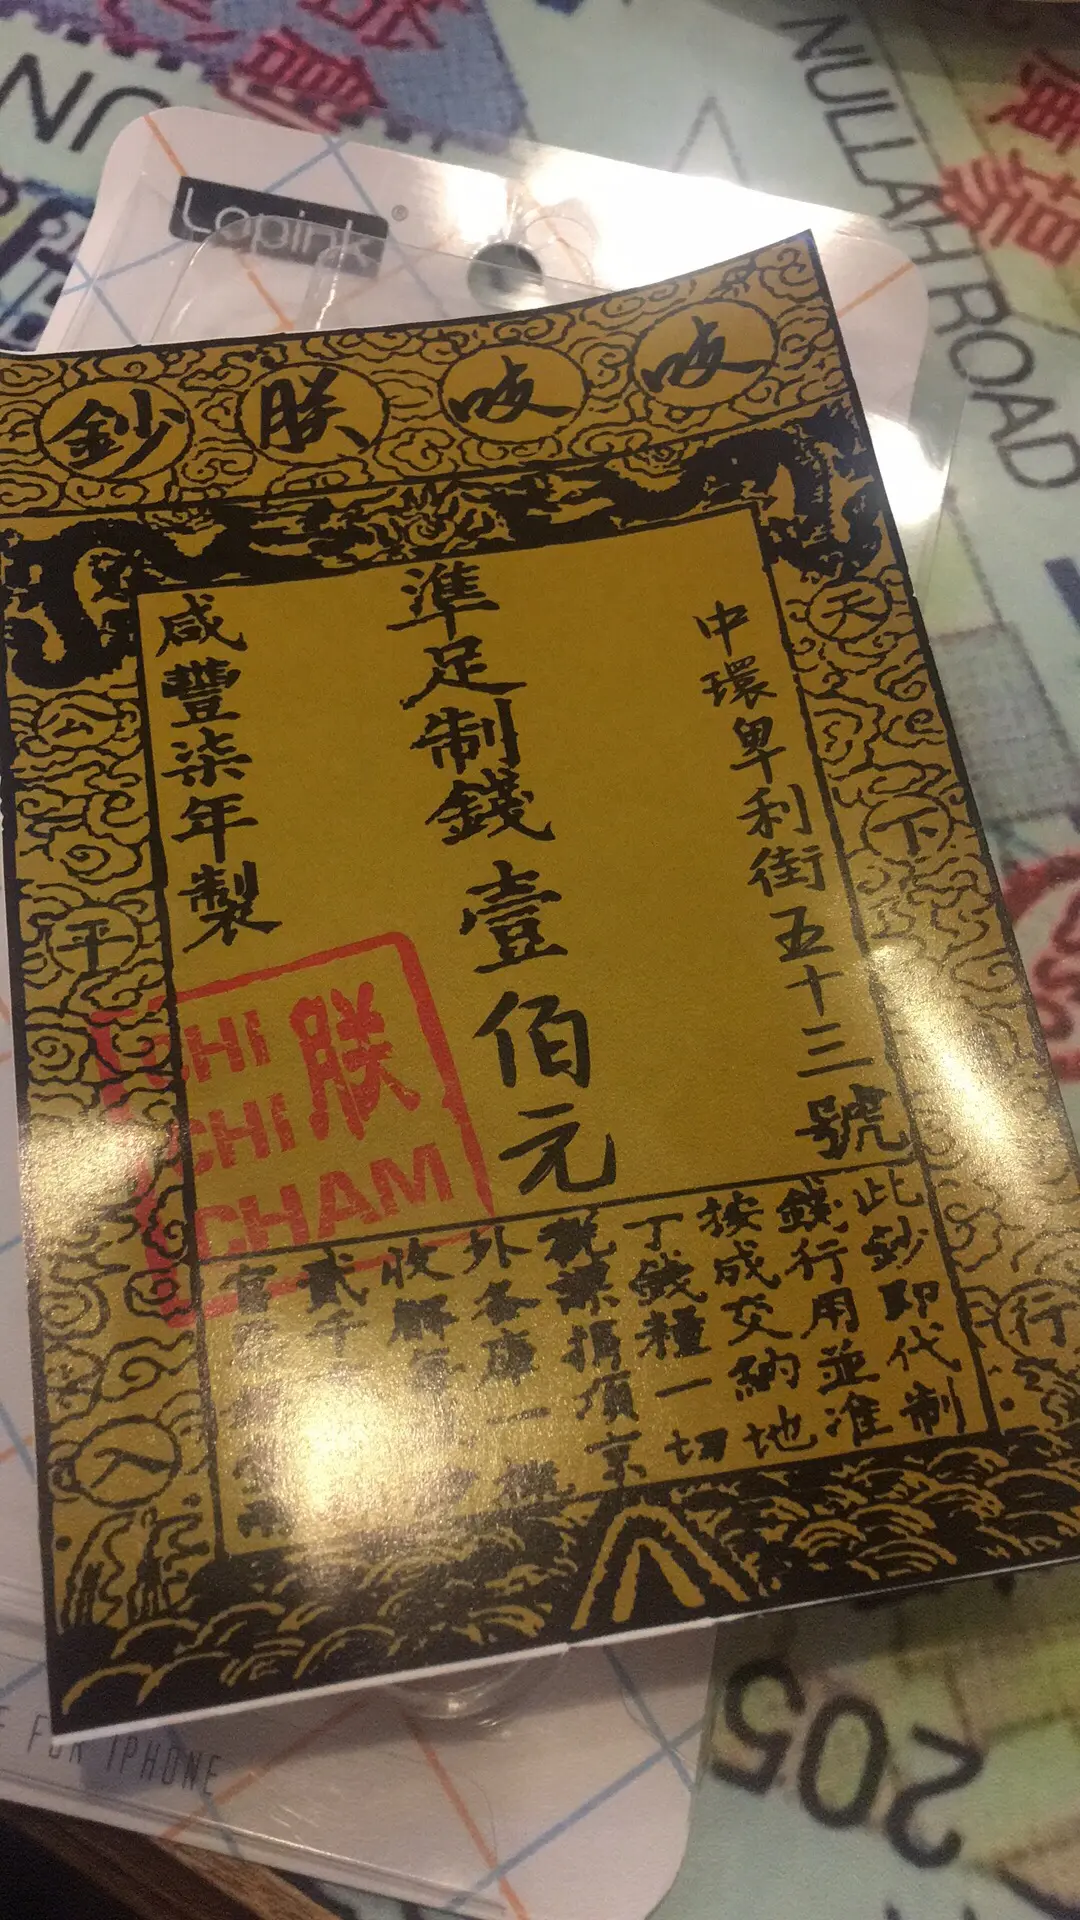 Lopink
NULLAH ROAD
吱吱朕鈔
中環卑利街五十三號
準足制錢壹佰元
咸豐柒年製
天下
行
公平
CHI
CHI
CHAM
朕
此鈔即代制
錢行用並准
按成交納地
丁錢糧一切
稅課捐項京
外各庫一概
收解
貳千
官
FOR IPHONE
205